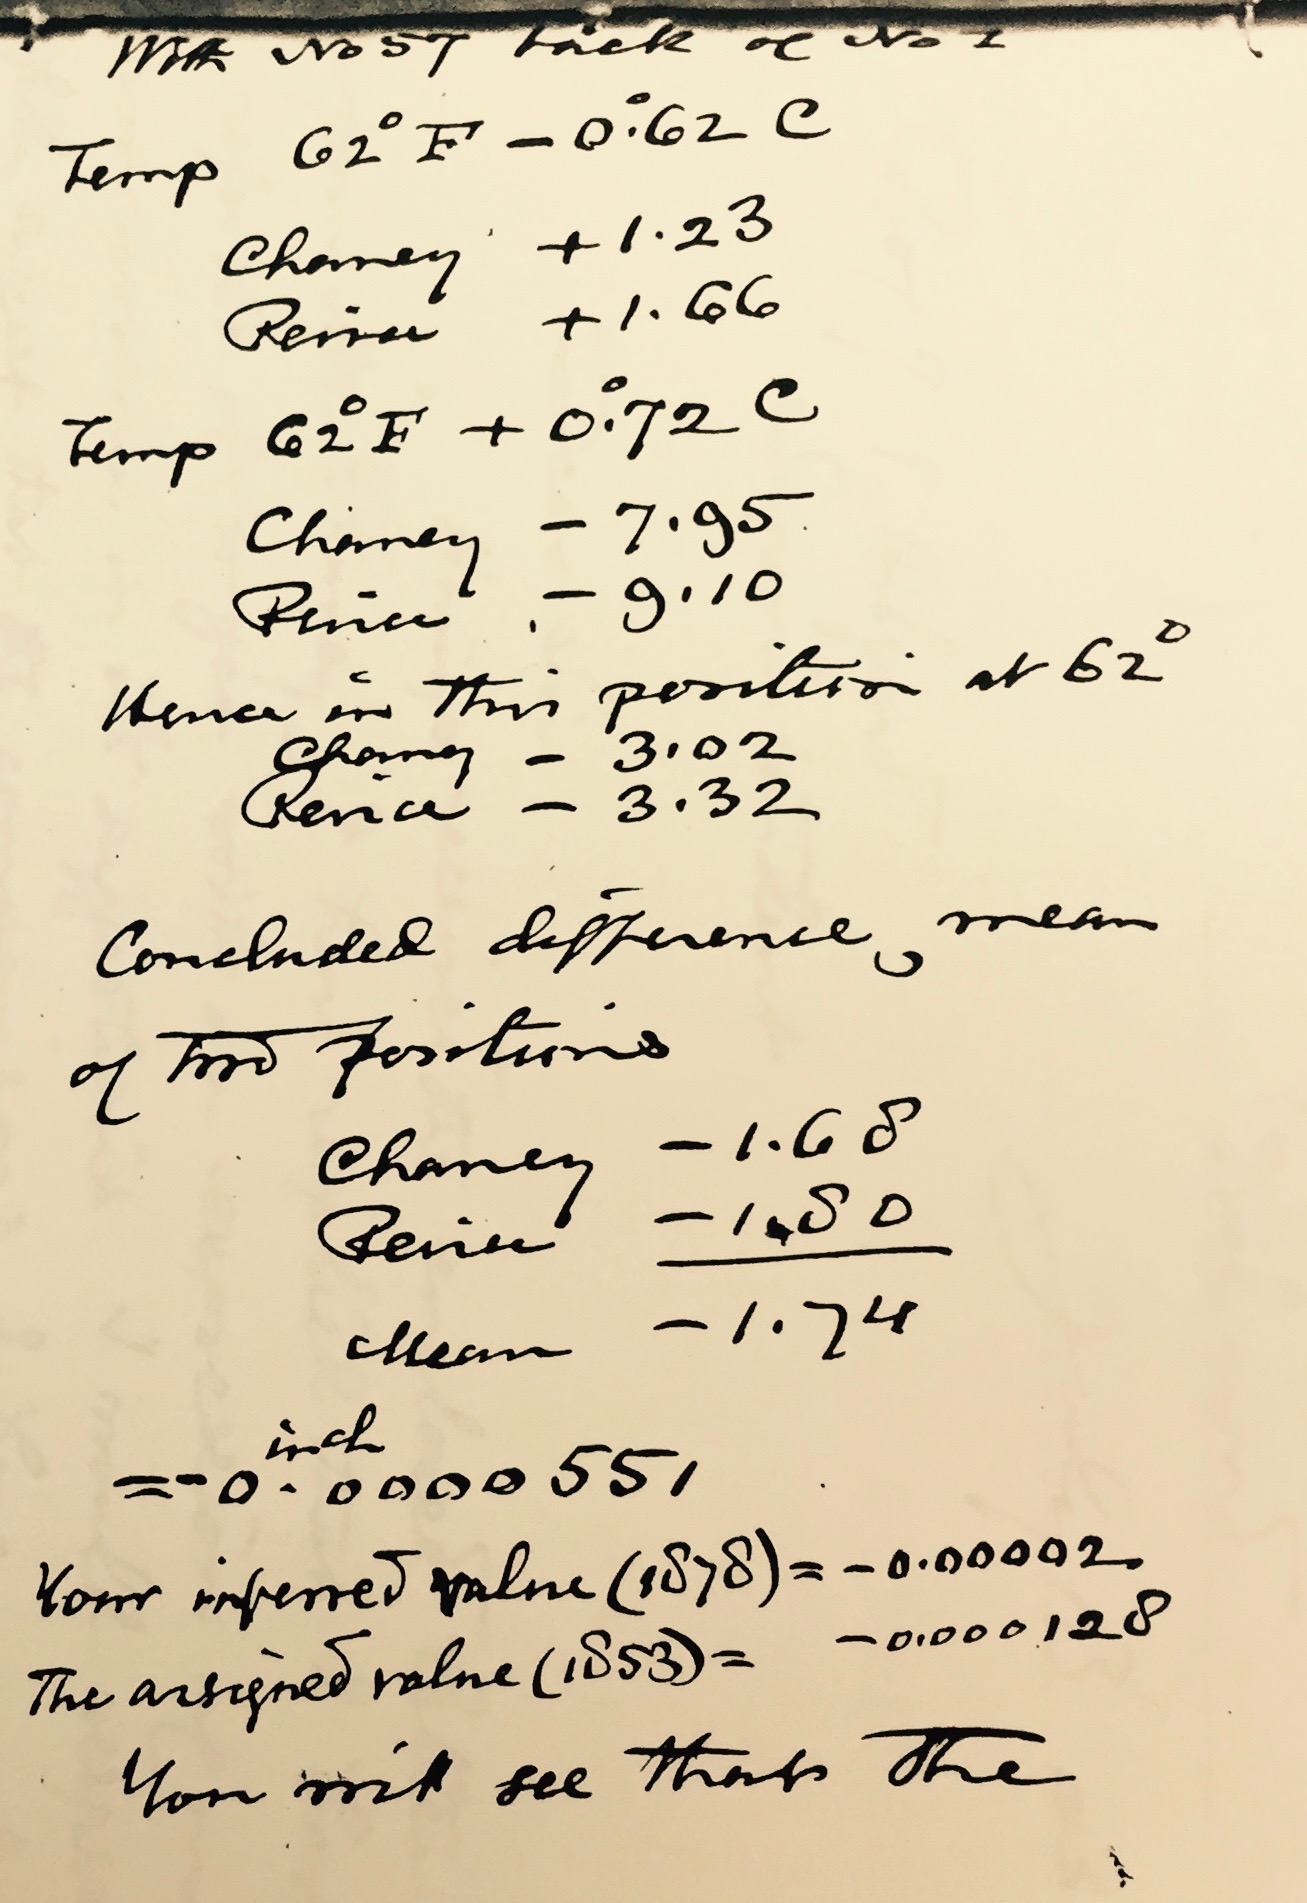 With No 57 back of No 1
Temp 62° F − 0°.62 C
Chaney + 1.23
Peirce + 1.66
Temp 62° F + 0°.72 C
Chaney − 7.95
Peirce − 9.10
Hence in this position at 62°
Chaney − 3.02
Peirce − 3.32
Concluded difference, mean
of two positions
Chaney − 1.68
Peirce − 1.80
Mean − 1.74
inch
= − 0.0000551
Your inferred value (1878) = − 0.00002
The assigned value (1853) = − 0.000128
You will see that the